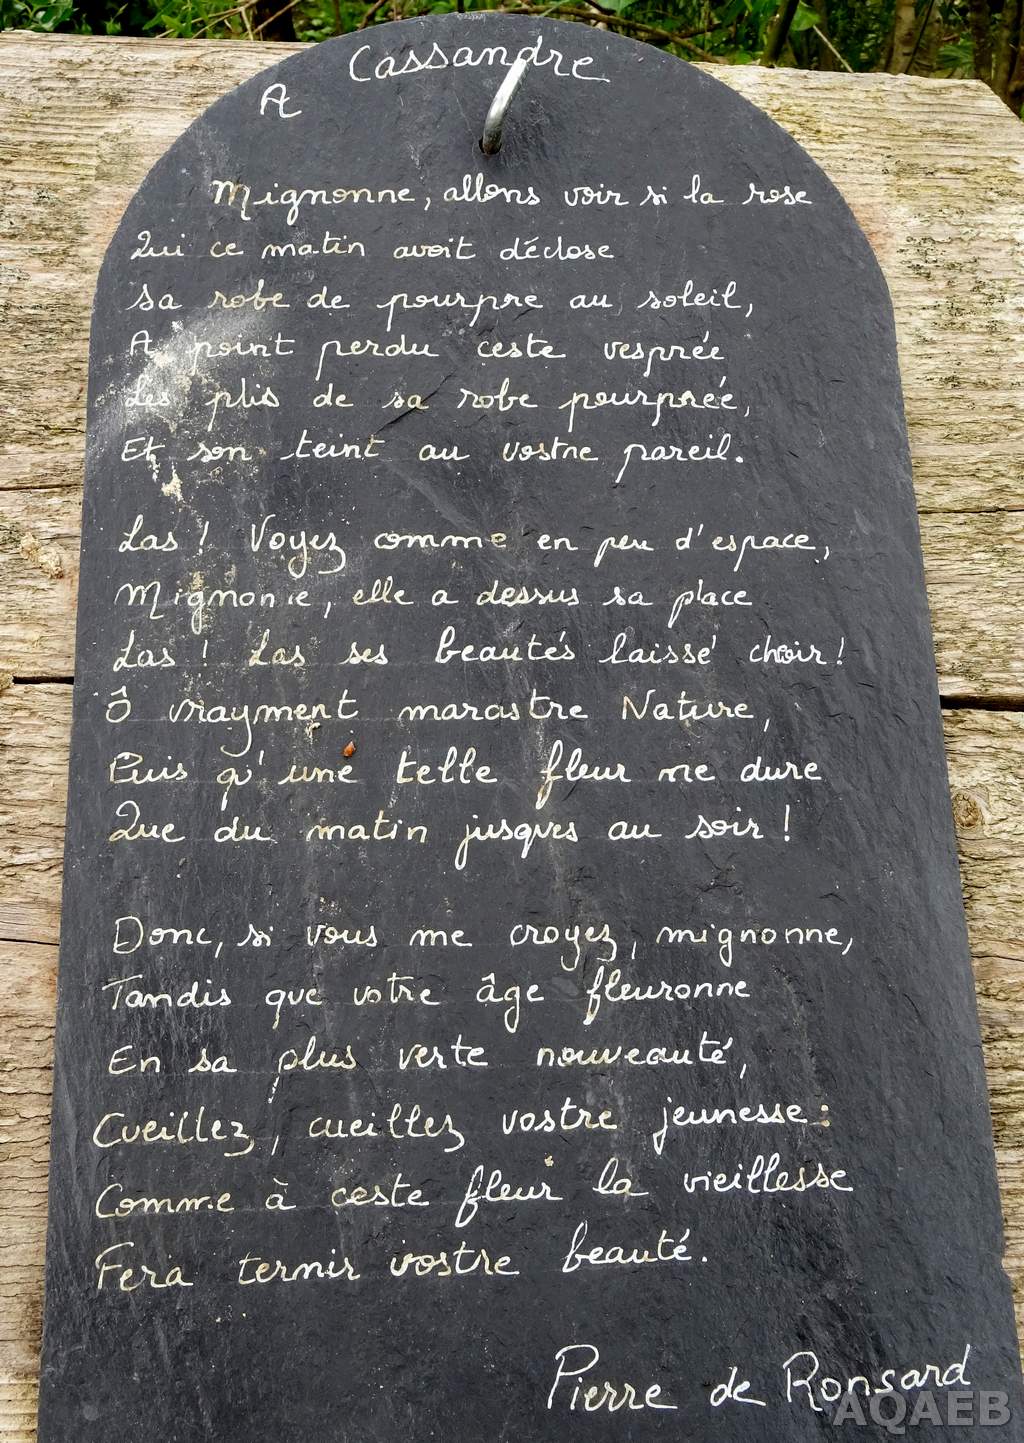 A Cassandre
Mignonne, allons voir si la rose
Qui ce matin avoit déclose
Sa robe de pourpre au soleil,
A point perdu ceste vesprée
Les plis de sa robe pourprée,
Et son teint au vostre pareil.
Las ! Voyez comme en peu d'espace,
Mignonne, elle a dessus sa place
Las ! Las ses beautés laissé choir !
Ô vrayment marastre Nature,
Puis qu'une telle fleur ne dure
Que du matin jusques au soir !
Donc, si vous me croyez, mignonne,
Tandis que votre âge fleuronne
En sa plus verte nouveauté,
Cueillez, cueillez vostre jeunesse :
Comme à ceste fleur la vieillesse
Fera ternir vostre beauté.
Pierre de Ronsard
AQAEB